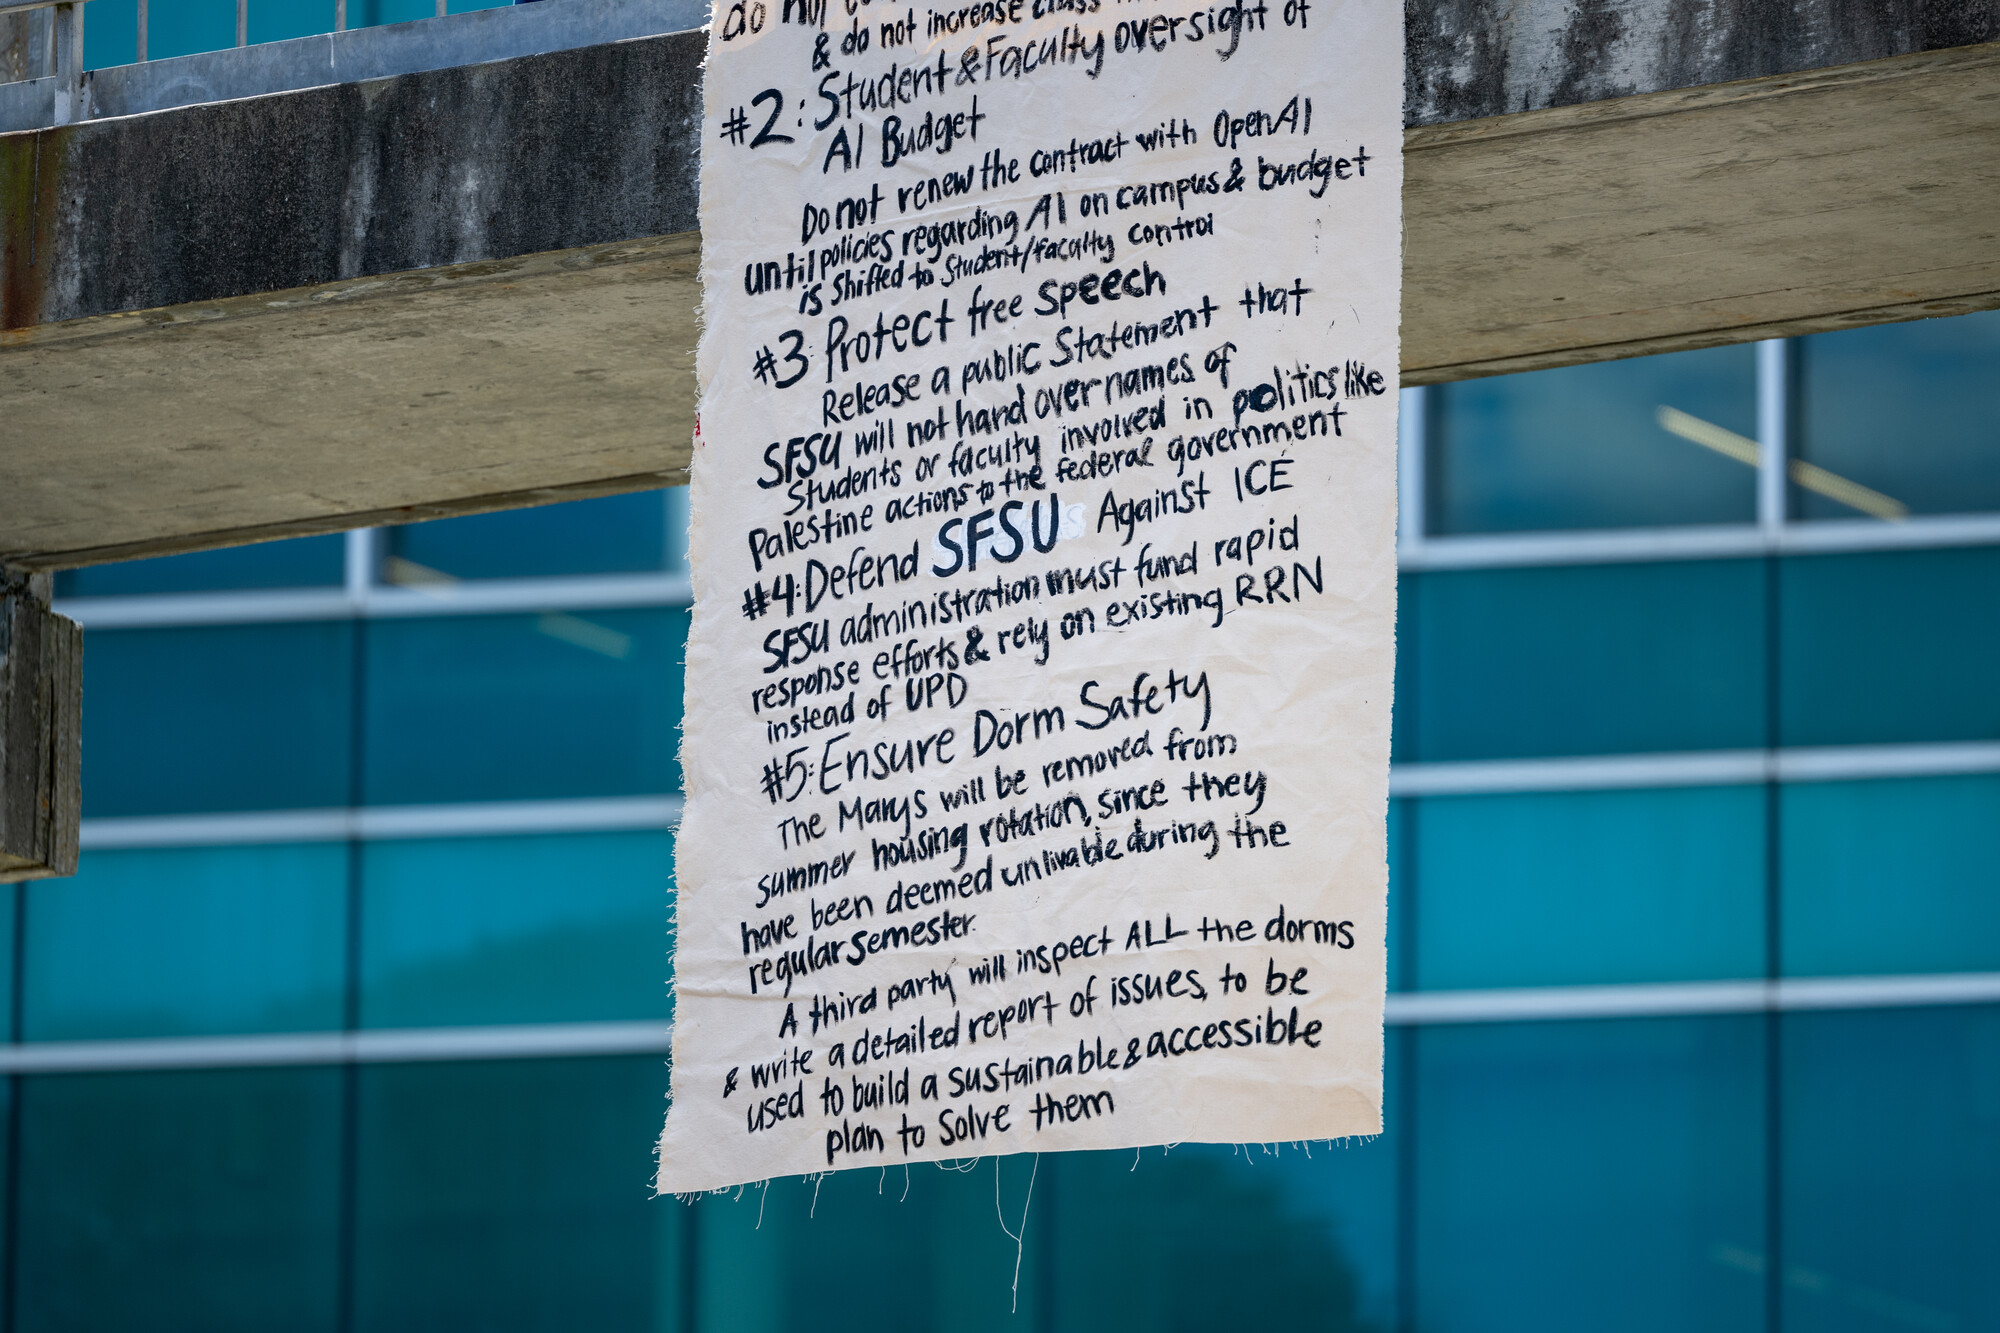 do not
& do not increase class
#2: Student & Faculty oversight of
AI Budget
Do not renew the contract with OpenAI
until policies regarding AI on campus & budget
is shifted to student/faculty control
#3 Protect free speech
Release a public statement that
SFSU will not hand over names of
students or faculty involved in politics like
Palestine actions to the federal government
#4: Defend SFSU Against ICE
SFSU administration must fund rapid
response efforts & rely on existing RRN
instead of UPD
#5: Ensure Dorm Safety
The Marys will be removed from
summer housing rotation, since they
have been deemed unlivable during the
regular semester.
A third party will inspect ALL the dorms
& write a detailed report of issues, to be
used to build a sustainable & accessible
plan to solve them